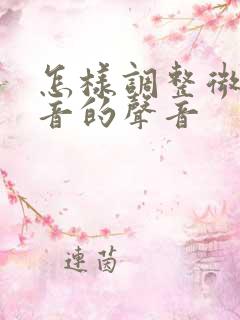 怎樣調整微
音的聲音
連茵